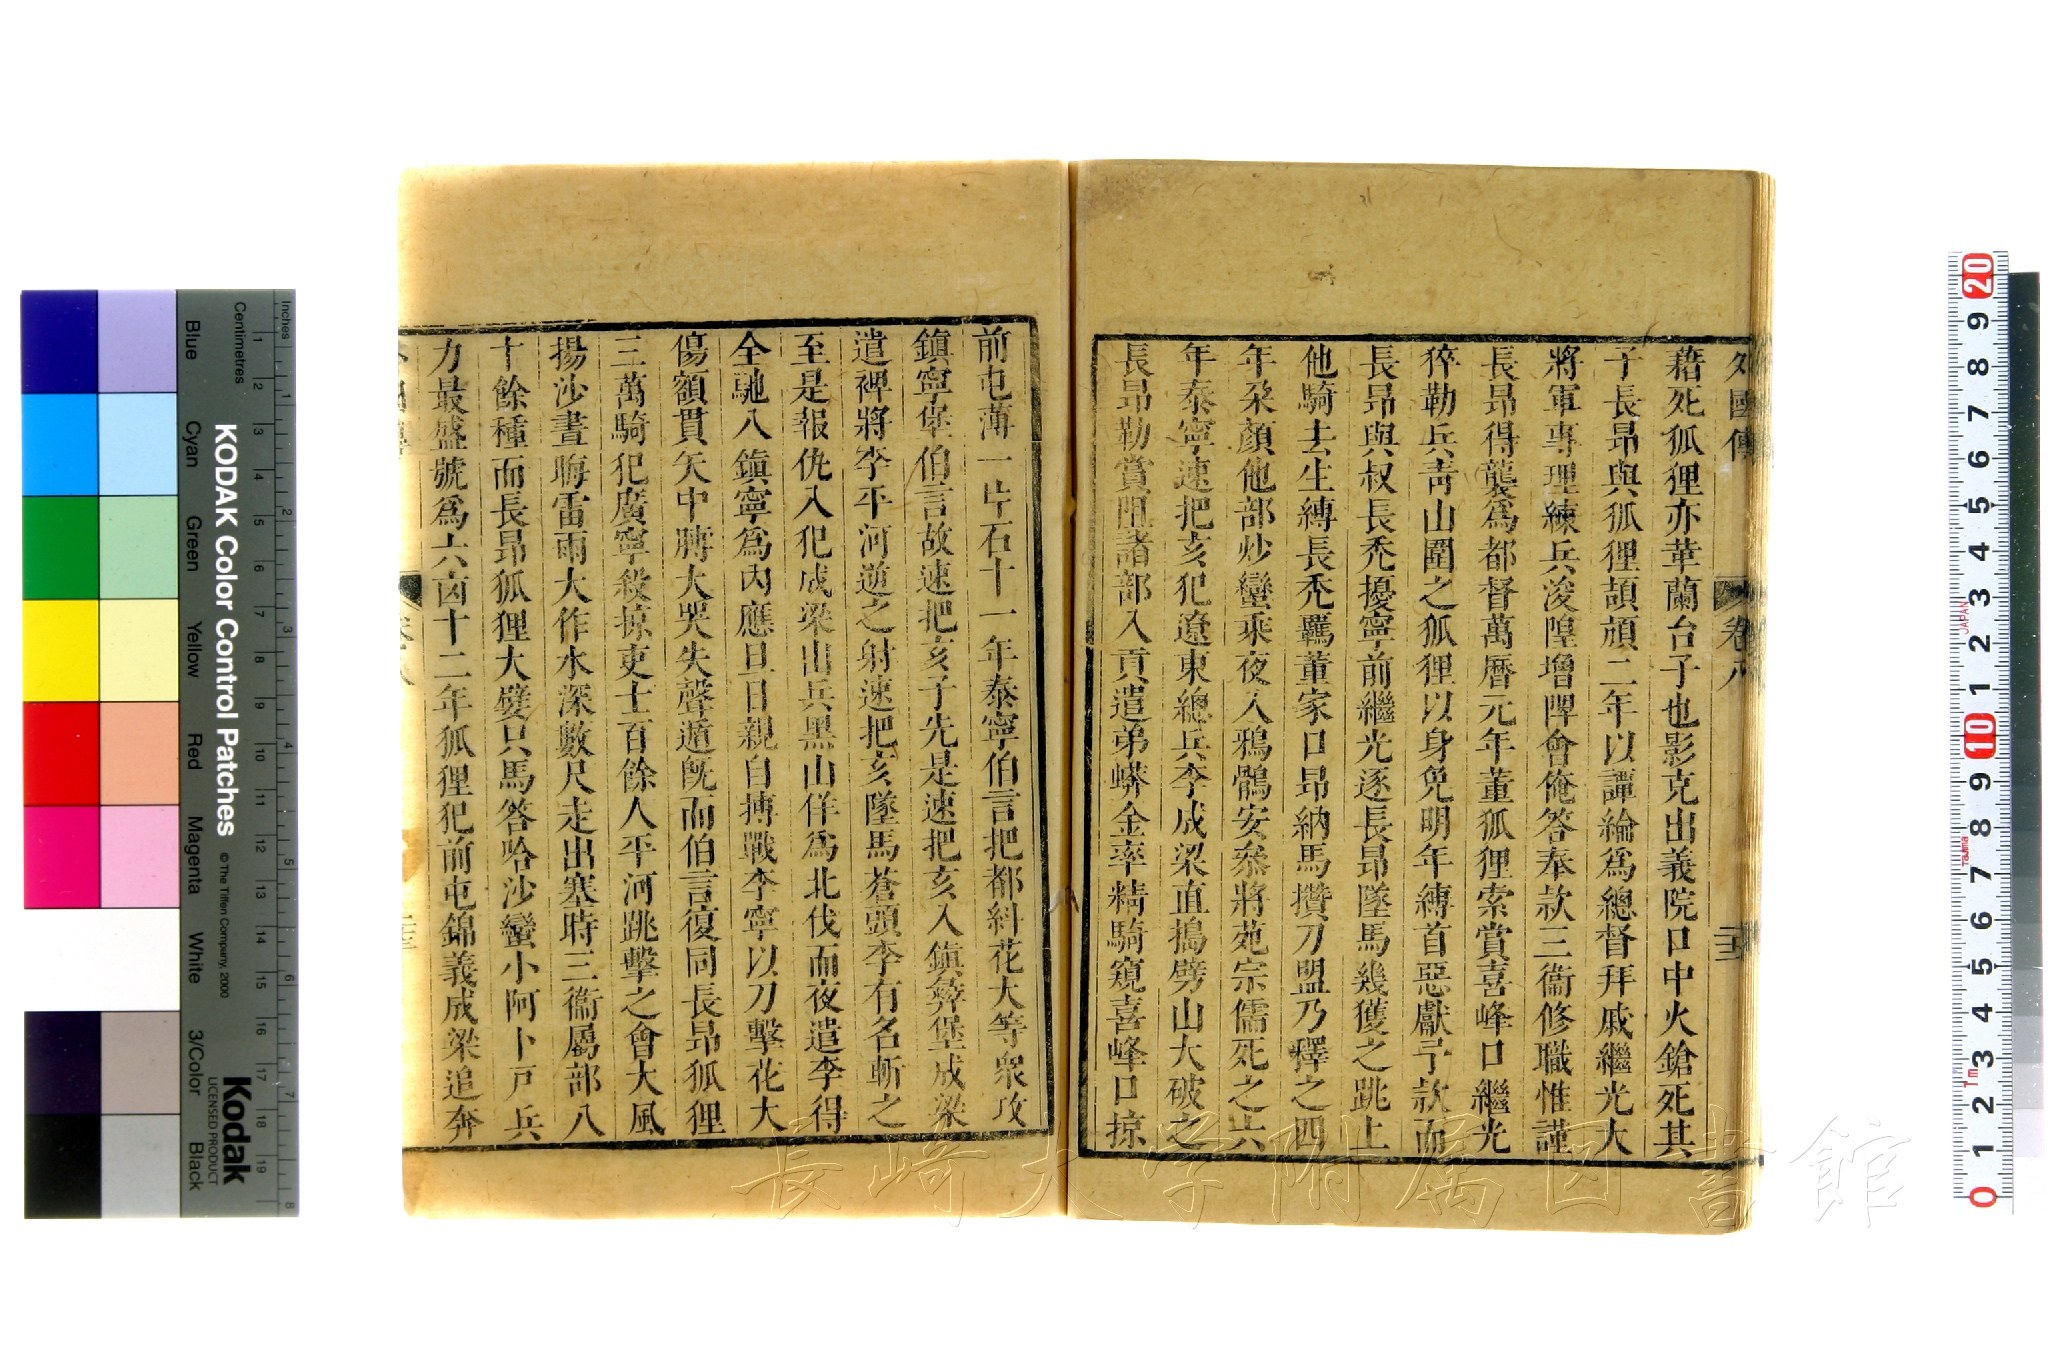 外國傳
卷八
藉死狐狸亦革蘭台子也影克出義院口中火鎗死其
子長昂與狐狸頡頏二年以譚綸爲總督拜戚繼光大
將軍專理練兵浚隍增陴會俺答奉款三衞修職惟謹
長昂得襲爲都督萬曆元年董狐狸索賞喜峰口繼光
猝勒兵青山圍之狐狸以身免明年縛首惡獻予款而
長昂與叔長禿擾寧前繼光逐長昂墜馬幾獲之跳上
他騎去生縛長禿羈董家口昂納馬攢刀盟乃釋之四
年朶顏他部炒蠻乘夜入鴉鶻安叅將苑宗儒死之六
年泰寧速把亥犯遼東總兵李成梁直搗劈山大破之
長昂勒賞阻諸部入貢遣弟蟒金率精騎窺喜峰口掠
前屯薄一片石十一年泰寧伯言把都糾花大等衆攻
鎮寧堡伯言故速把亥子先是速把亥入鎮彝堡成梁
遣裨將李平河逆之射速把亥墜馬蒼頭李有名斬之
至是報仇入犯成梁出兵黑山佯爲北伐而夜遣李得
全馳入鎮寧爲內應旦日親自搏戰李寧以刀擊花大
傷額貫矢中膊大哭失聲遁旣而伯言復同長昂狐狸
三萬騎犯廣寧殺掠吏士百餘人平河跳擊之會大風
揚沙晝晦雷雨大作水深數尺走出塞時三衞屬部八
十餘種而長昂狐狸大嬖只馬答哈沙蠻小阿卜戸兵
力最盛號爲六凶十二年狐狸犯前屯錦義成梁追奔
長崎大学附属図書館
KODAK Color Control Patches
© The Tiffen Company, 2000
Kodak
LICENSED PRODUCT
Blue Cyan Green Yellow Red Magenta White 3/Color Black
Inches 1 2 3 4 5 6 7 8
Centimetres 1 2 3 4 5 6 7 8 9 10 11 12 13 14 15 16 17 18 19
20 9 8 7 6 5 4 3 2 1 10 9 8 7 6 5 4 3 2 1 0
JAPAN
Tajima